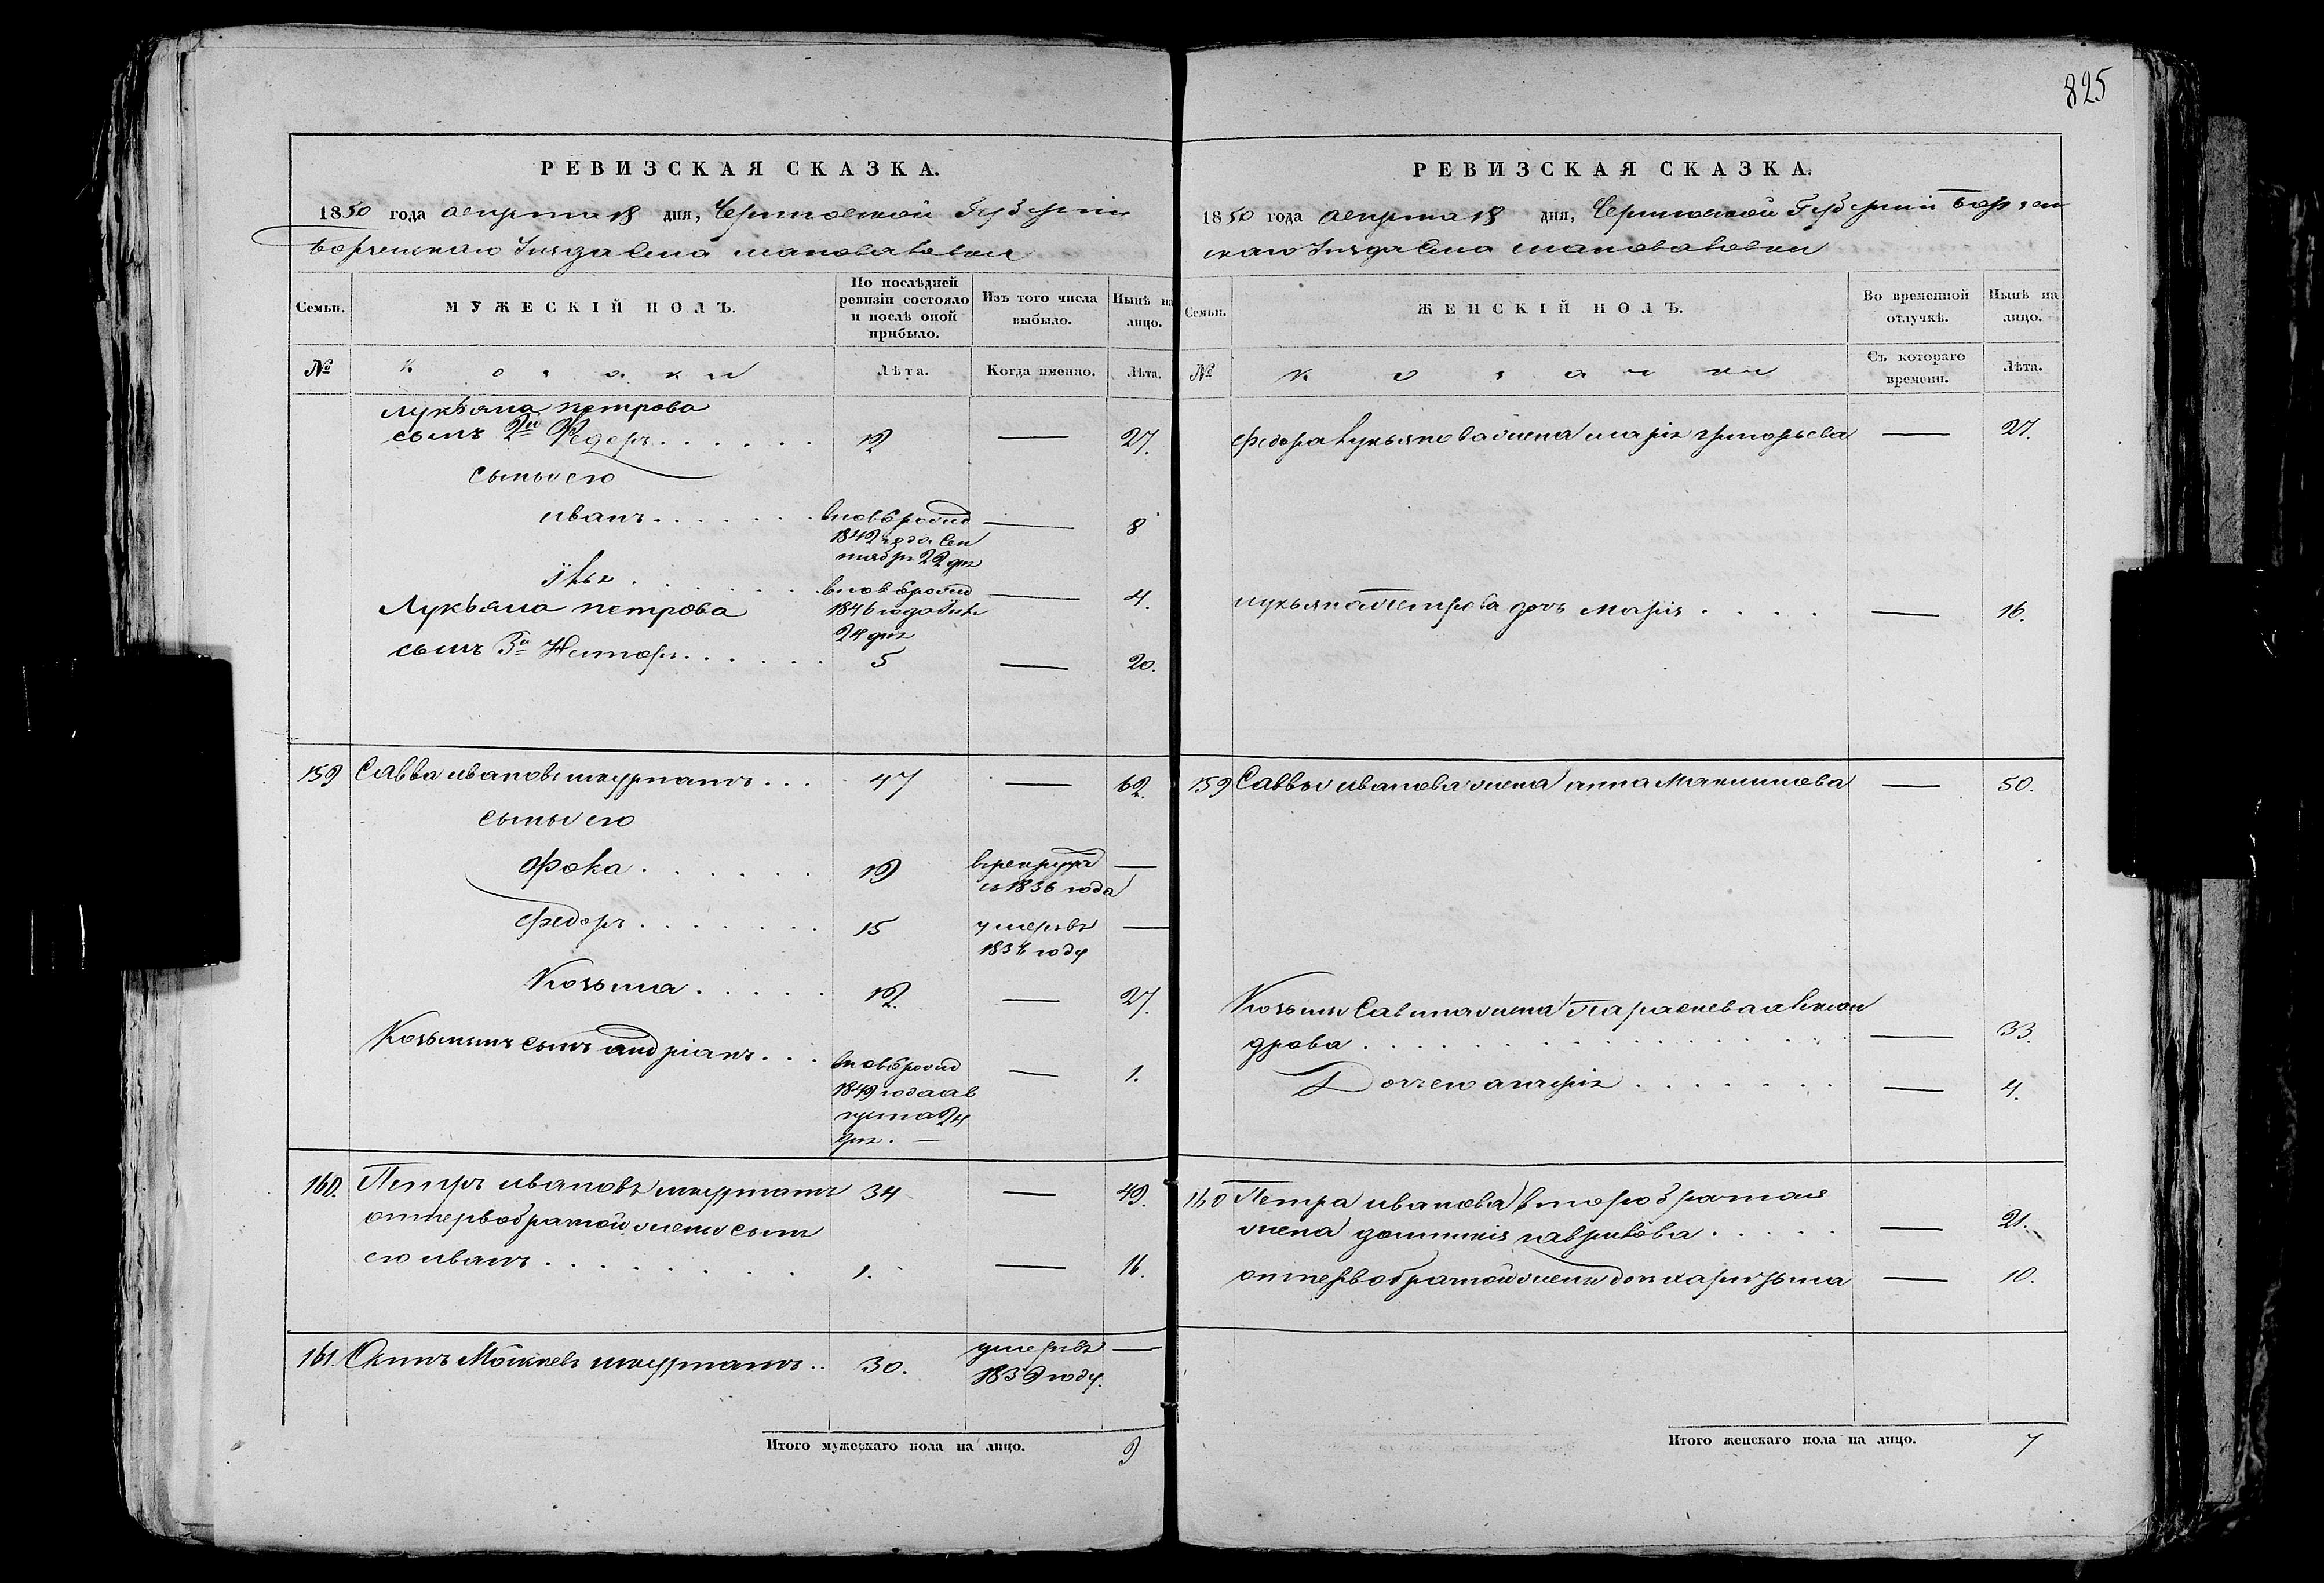 825
РЕВИЗСКАЯ СКАЗКА.
1850 года августа 18 дня, Черниговской Губернии
Борзенскаго Уезда Села Шаповаловки
Семьи.
МУЖЕСКІЙ ПОЛЪ.
По послѣдней ревизіи состояло и послѣ оной прибыло.
Изъ того числа выбыло.
Нынѣ на лицо.
№
Козаки
Лѣта.
Когда именно.
Лѣта.
Лукьяна петрова
сынъ 2й Федоръ . . . . . . 12 — 27.
сыны его
иванъ . . . . . . вновь рожд — 8
1842 года Сен
тября 22 дня
Лукьяна петрова
сынъ 3й Нестор . . . . . . 5 — 20.
159 Савва ивановъ шкурпатъ . . . 47 — 62.
сыны его
Фока . . . . . . 19 в рекрут —
съ 1836 года
Федоръ . . . . . . 15 умеръ въ —
году
Козьма . . . . . 12. — 27.
Козьминъ сынъ андріанъ . . . вновь рожд — 1.
1849 года ав
густа 24
дня. —
160. Петръ ивановъ шкурпатъ 34 — 49.
отпервобрачной жены сынъ
его иванъ . . . . . . . . 1. — 16.
161. шкурпатъ . . 30. умеръ въ —
1839 году.
Итого мужескаго пола на лицо. 9
РЕВИЗСКАЯ СКАЗКА.
1850 года августа 18 дня, Черниговской Губернии Борзен
скаго Уезда Села Шаповаловки
Семьи.
ЖЕНСКІЙ ПОЛЪ.
Во временной отлучкѣ.
Нынѣ на лицо.
№
Козачки
Съ котораго времени.
Лѣта.
Федора Лукьянова жена марія григорьева — 27.
лукьяна петрова дочь Марія . . . . — 16.
159 Саввы иванова жена анна — 50.
Козьмы Савина жена Параскева алексан
дрова . . . . . — 33.
Дочь его — 4.
160 Петра иванова второбрачная
жена гаврилова . . . . . — 21.
отпервобрачной жены дочь — 10.
Итого женскаго пола на лицо. 7